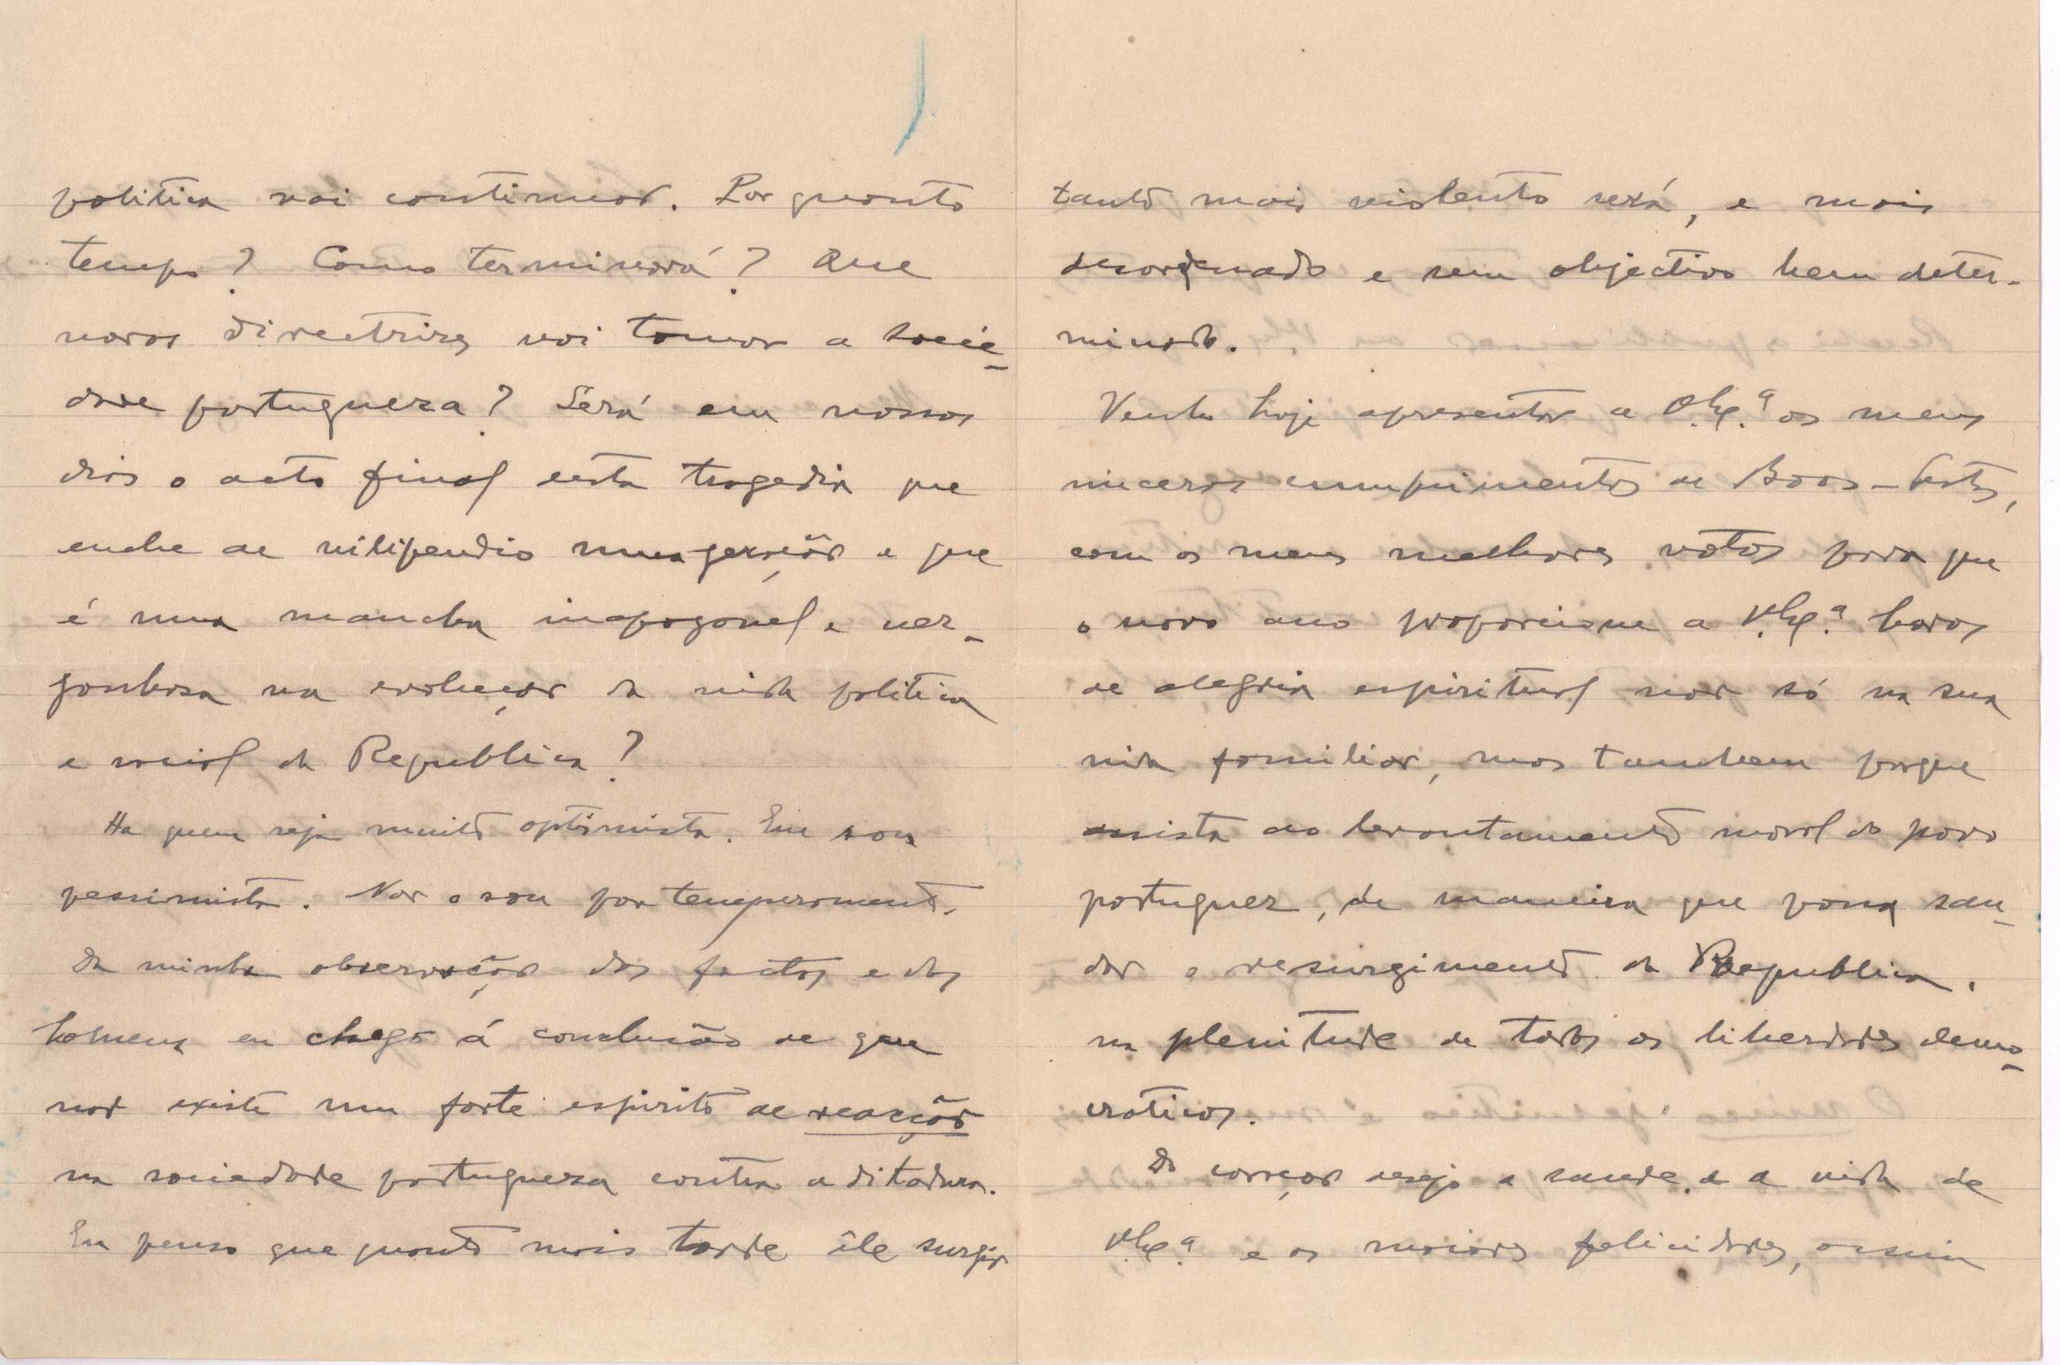 politica vai continuar. Por quanto
tempo? Como terminará? Que
novas directrizes vai tomar a socie-
dade portugueza? Será em nossos
dias o acto final desta tragedia que
enche de vilipendio uma geração e que
é uma mancha inapagavel e ver-
gonhosa na evolução da vida politica
e social da Republica?
Ha quem seja muito optimista. Eu sou
pessimista. Não o sou por temperamento.
Da minha observação dos factos e dos
homens eu chego á conclusão de que
não existe um forte espirito de reacção
na sociedade portugueza contra a ditadura.
Eu penso que quanto mais tarde êle surgir
tanto mais violento será, e mais
desordenado e sem objectivo bem deter-
minado.
Venho hoje apresentar a V. Ex.ª os meus
sinceros cumprimentos de Boas-Festas,
com os meus melhores votos para que
o novo ano proporcione a V. Ex.ª horas
de alegria espiritual não só na sua
vida familiar, mas tambem porque
assista ao levantamento moral do povo
portuguez, de maneira que possa sau-
dar o resurgimento da Republica.
na plenitude de todas as liberdades demo-
craticas.
Do coração desejo a saude e a vida de
V. Ex.ª e as maiores felicidades, assim